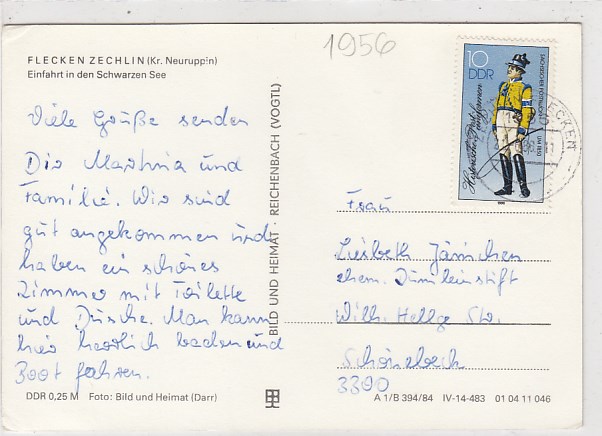 FLECKEN ZECHLIN (Kr. Neuruppin)
Einfahrt in den Schwarzen See
1956
10
DDR
SÄCHSISCHER POSTILLION
UM 1850
Historische Postuniformen
1986
FLECKEN
Viele Grüße senden
Dir Martina und
Familie. Wir sind
gut angekommen und
haben ein schönes
Zimmer mit Toilette
und Dusche. Man kann
hier herrlich baden und
Boot fahren.
BILD UND HEIMAT · REICHENBACH (VOGTL)
Frau
Liesbeth Jänichen
ehem. Dumleinstift
Wilh. Hellge Str.
Schönebeck
3300
DDR 0,25 M Foto: Bild und Heimat (Darr)
A 1/B 394/84 IV-14-483 01 04 11 046